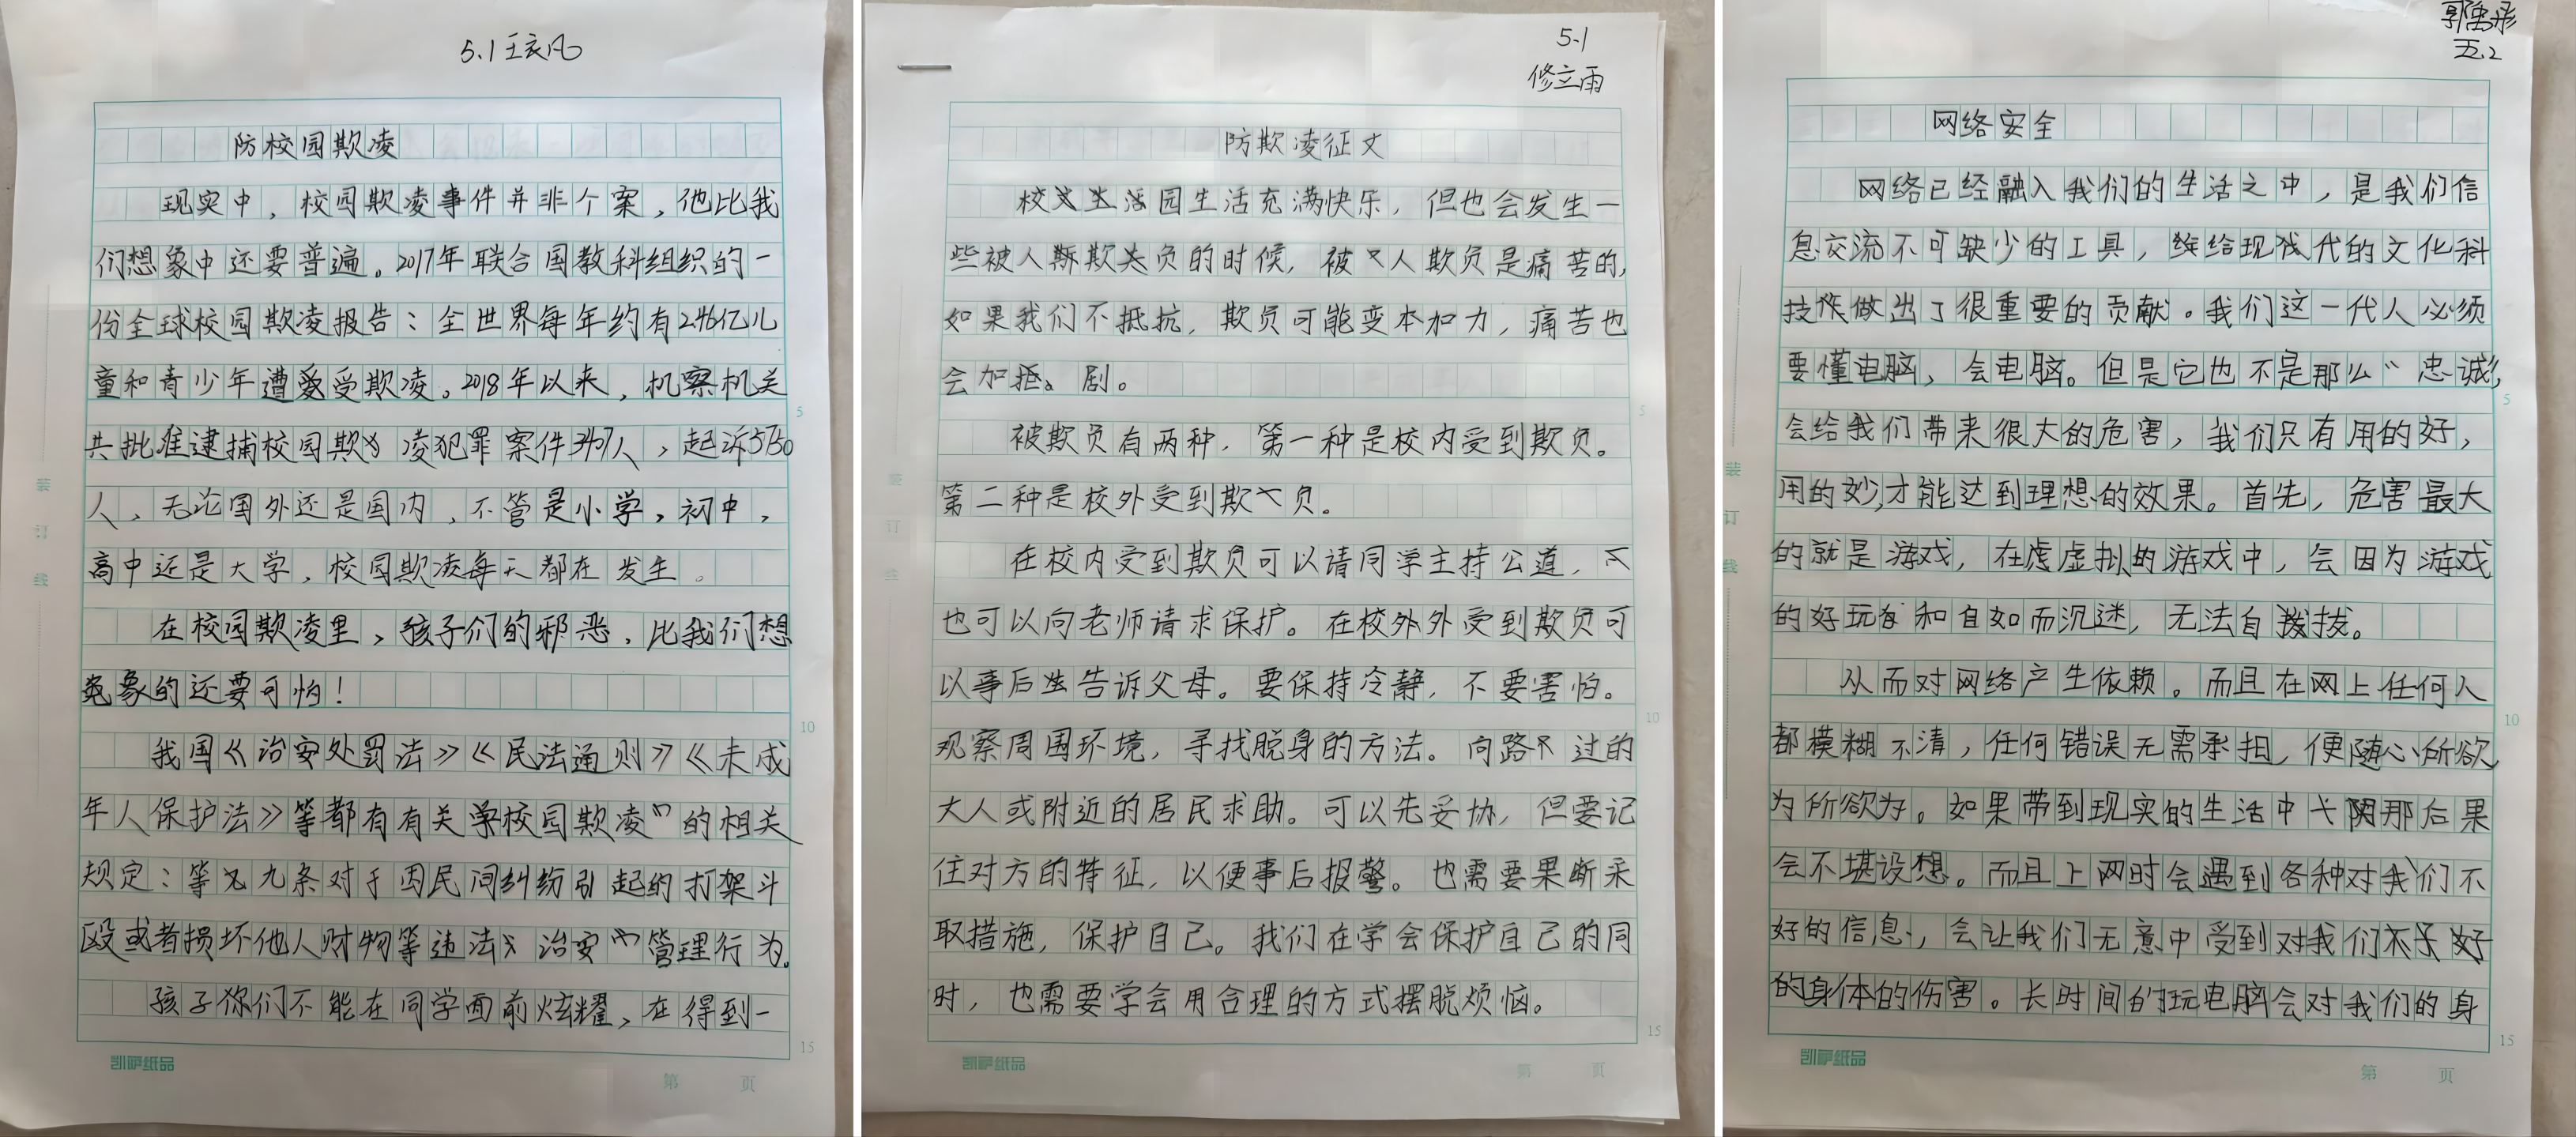 5.1 王衣凡
防校园欺凌
现实中，校园欺凌事件并非个案，他比我
们想象中还要普遍。2017年联合国教科组织的一
份全球校园欺凌报告：全世界每年约有2.46亿儿
童和青少年遭受欺凌。2018年以来，机察机关
共批准逮捕校园欺凌犯罪案件3407人，起诉5750
人，无论国外还是国内，不管是小学，初中，
高中还是大学，校园欺凌每天都在发生。
在校园欺凌里，孩子们的邪恶，比我们想
象的还要可怕！
我国《治安处罚法》《民法通则》《未成
年人保护法》等都有有关学校园欺凌”的相关
规定：等九条对于因民间纠纷引起的打架斗
殴或者损坏他人财物等违法治安管理行为。
孩子你们不能在同学面前炫耀，在得到一
装
订
线
5
10
15
凯萨纸品
第 页
5.1
修立雨
防欺凌征文
校园生活充满快乐，但也会发生一
些被人欺负的时候，被人欺负是痛苦的，
如果我们不抵抗，欺负可能变本加力，痛苦也
会加剧。
被欺负有两种，第一种是校内受到欺负。
第二种是校外受到欺负。
在校内受到欺负可以请同学主持公道，
也可以向老师请求保护。在校外外受到欺负可
以事后告诉父母。要保持冷静，不要害怕。
观察周围环境，寻找脱身的方法。向路过的
大人或附近的居民求助。可以先妥协，但要记
住对方的特征，以便事后报警。也需要果断采
取措施，保护自己。我们在学会保护自己的同
时，也需要学会用合理的方式摆脱烦恼。
装
订
线
5
10
15
凯萨纸品
第 页
五.2
网络安全
网络已经融入我们的生活之中，是我们信
息交流不可缺少的工具，给现代的文化科
技做出了很重要的贡献。我们这一代人必须
要懂电脑，会电脑。但是它也不是那么“忠诚”，
会给我们带来很大的危害，我们只有用的好，
用的妙，才能达到理想的效果。首先，危害最大
的就是游戏，在虚拟的游戏中，会因为游戏
的好玩和自如而沉迷，无法自拔。
从而对网络产生依赖。而且在网上任何人
都模糊不清，任何错误无需承担，便随心所欲，
为所欲为。如果带到现实的生活中那后果
会不堪设想。而且上网时会遇到各种对我们不
好的信息，会让我们无意中受到对我们不好
的身体的伤害。长时间的玩电脑会对我们的身
装
订
线
5
10
15
凯萨纸品
第 页